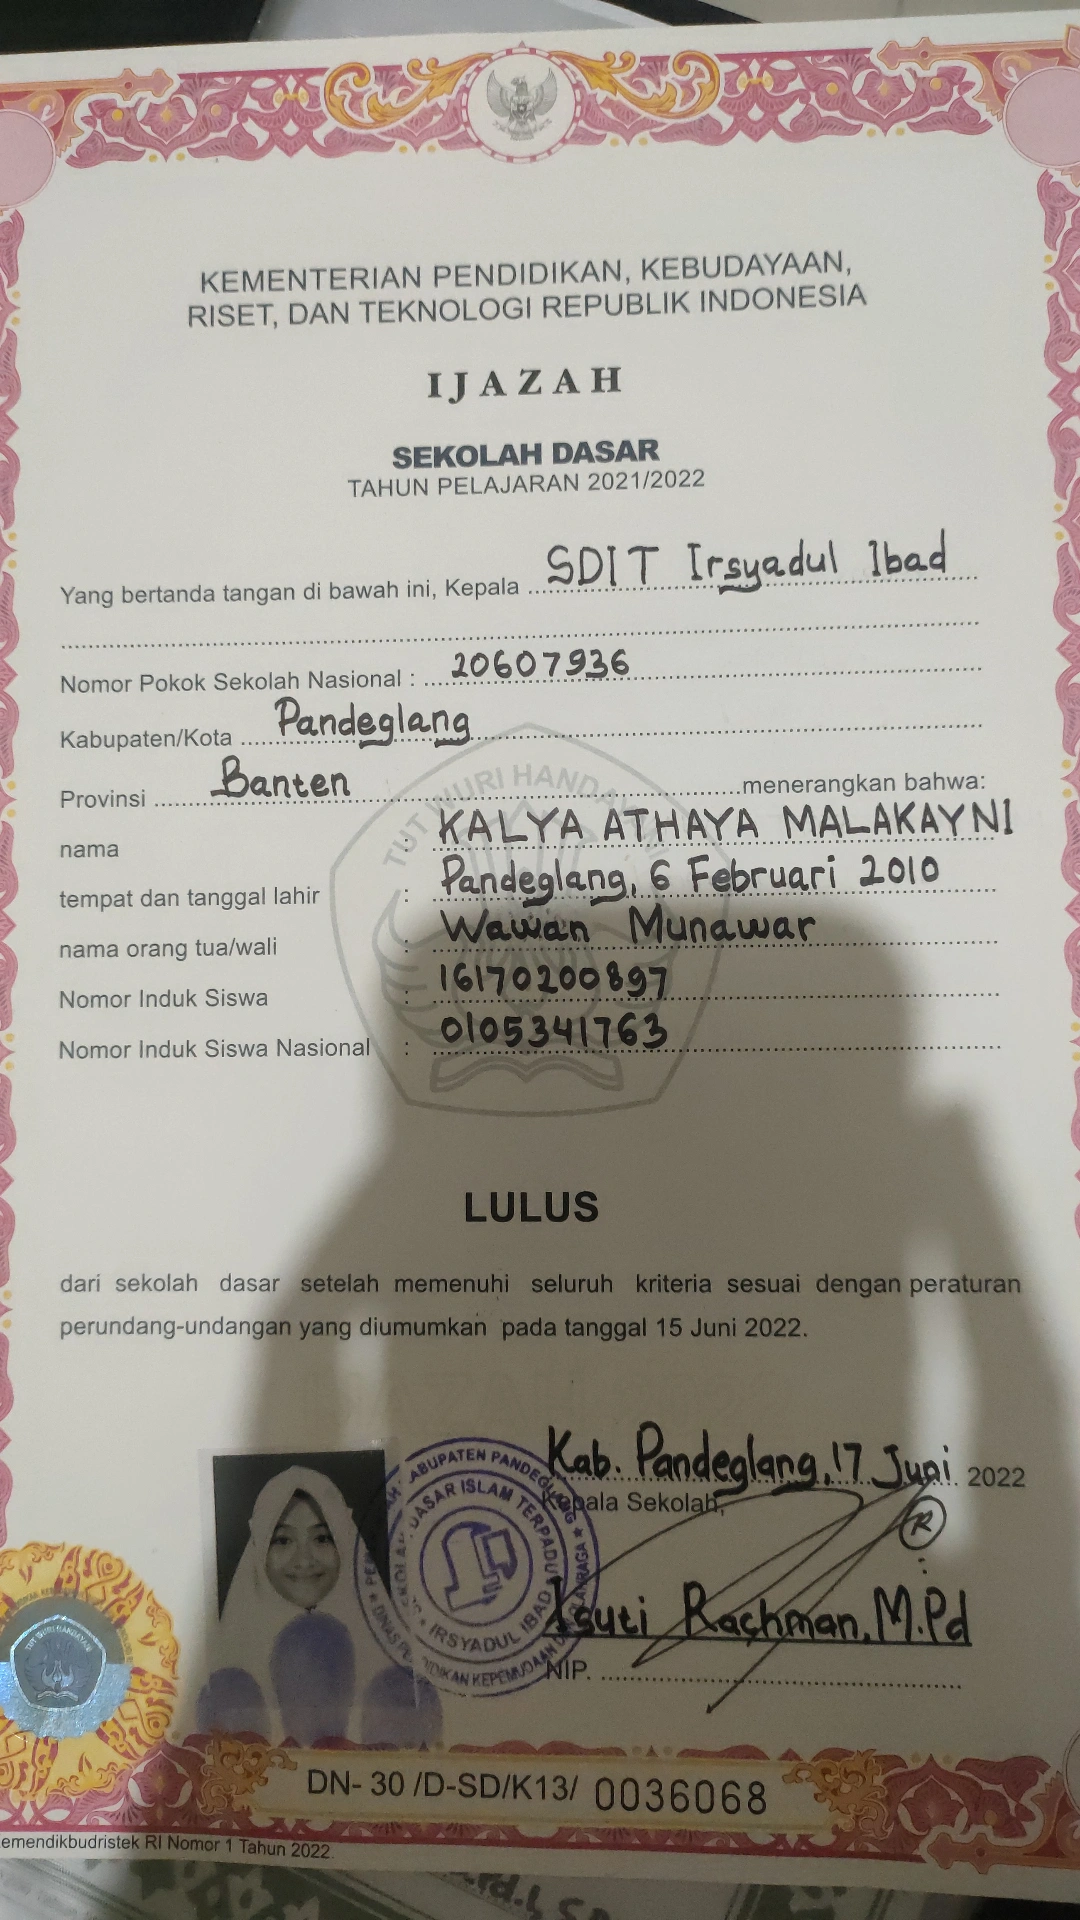 KEMENTERIAN PENDIDIKAN, KEBUDAYAAN,
RISET, DAN TEKNOLOGI REPUBLIK INDONESIA
IJAZAH
SEKOLAH DASAR
TAHUN PELAJARAN 2021/2022
Yang bertanda tangan di bawah ini, Kepala SDIT Irsyadul Ibad
Nomor Pokok Sekolah Nasional : 20607936
Kabupaten/Kota Pandeglang
Provinsi Banten menerangkan bahwa:
nama : KALYA ATHAYA MALAKAYNI
tempat dan tanggal lahir : Pandeglang, 6 Februari 2010
nama orang tua/wali : Wawan Munawar
Nomor Induk Siswa : 16170200897
Nomor Induk Siswa Nasional : 0105341763
TUT WURI HANDAYANI
LULUS
dari sekolah dasar setelah memenuhi seluruh kriteria sesuai dengan peraturan
perundang-undangan yang diumumkan pada tanggal 15 Juni 2022.
Kab. Pandeglang, 17 Juni 2022
Kepala Sekolah,
Isuti Rachman, M.Pd
NIP.
KABUPATEN PANDEGLANG
DASAR ISLAM TERPADU
IRSYADUL IBAD
TUT WURI HANDAYANI
DN- 30 /D-SD/K13/ 0036068
emendikbudristek RI Nomor 1 Tahun 2022